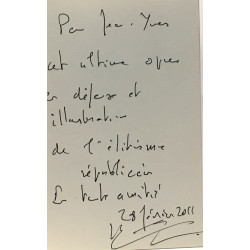 Pour Jean-Yves
cet ultime opus
en défense et
illustration
de l'élitisme
républicain
En toute amitié
28 février 2011